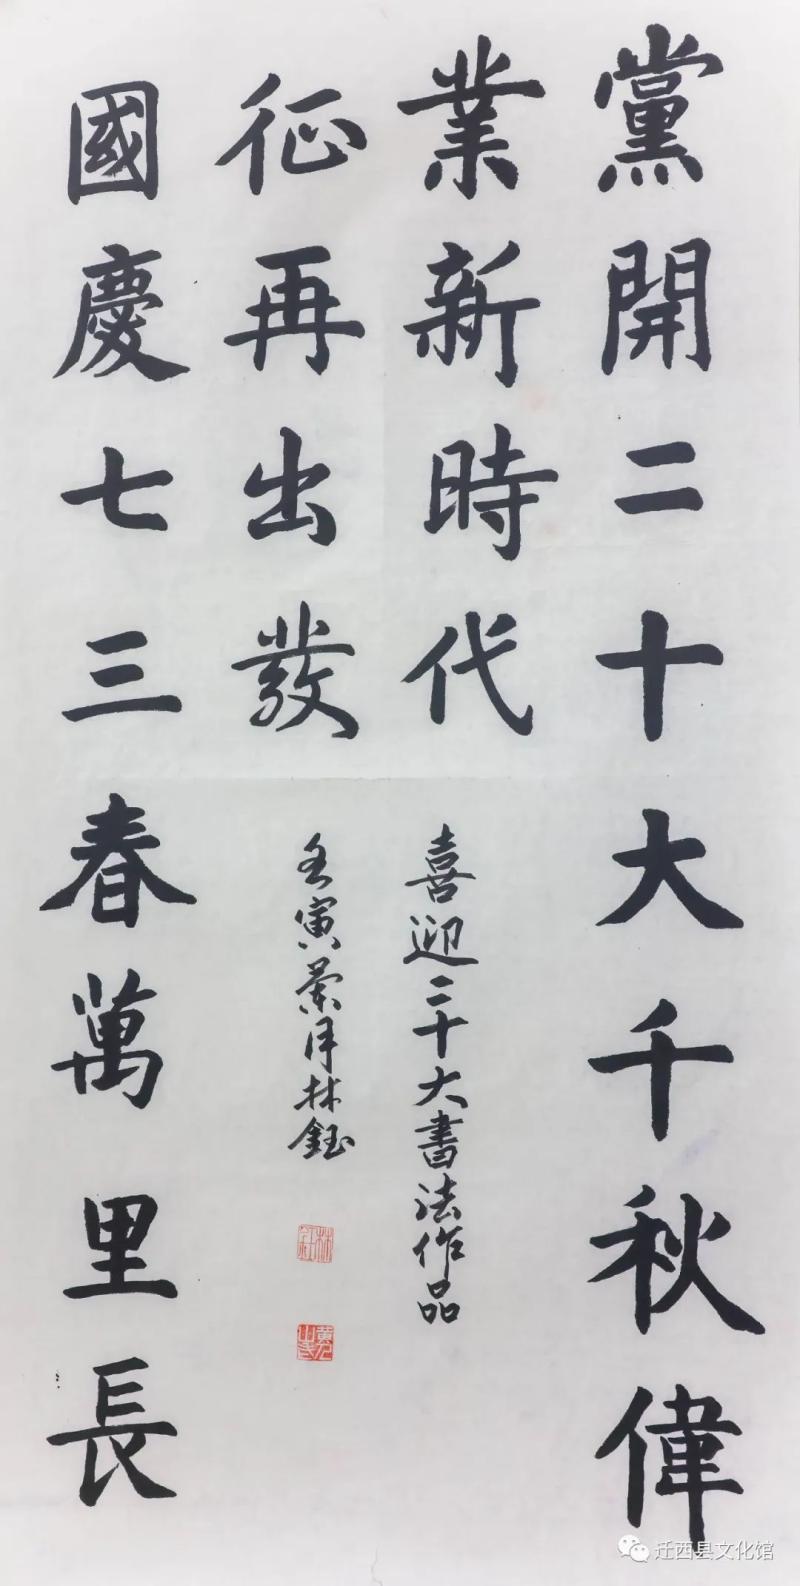 黨開二十大千秋偉
業新時代
國慶七三春萬里長
征再出發
喜迎二十大書法作品
壬寅月林鈺
林鈺
迁西县文化馆